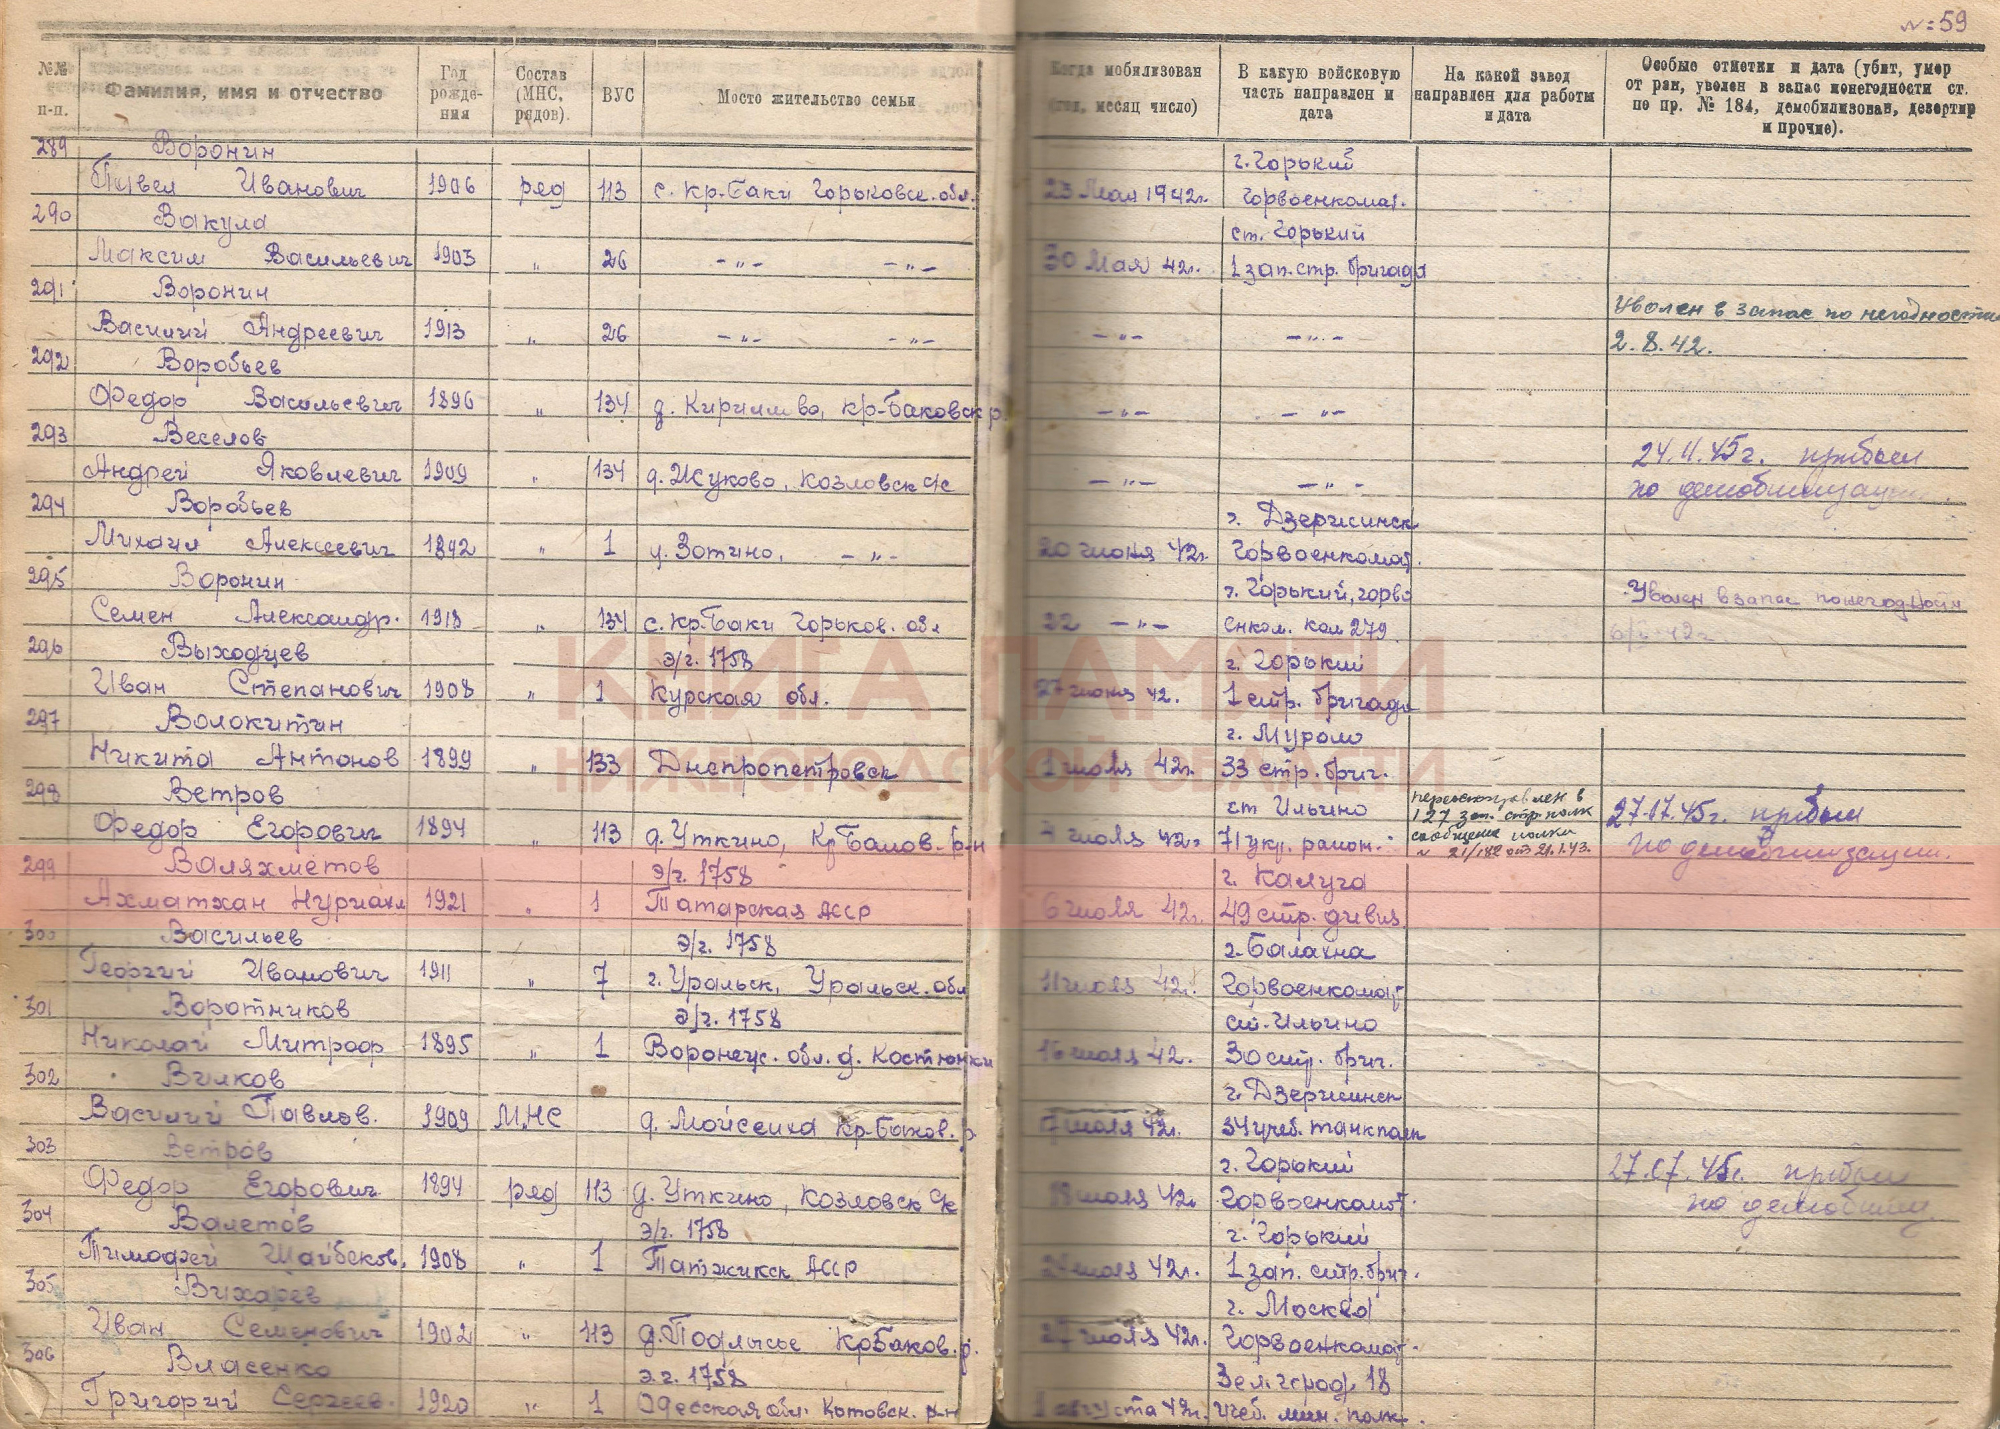 №: 59
№№ п-п.
Фамилия, имя и отчество
Год рожде-ния
Состав (МНС, рядов).
ВУС
Мосто жительство семьи
Когда мобилизован (год, месяц число)
В какую войсковую часть направлен и дата
На какой завод направлен для работы и дата
Особые отметки и дата (убит, умер от ран, уволен в запас понегодности ст. по пр. № 184, демобилизован, дезертир и прочие).
289 Воронин г. Горький
Павел Иванович 1906 ряд 113 с. Кр-Баки Горьковск. обл. 23 Мая 1942г. Горвоенкомат.
290 Вакула ст. Горький
Максим Васильевич 1903 " 26 -"- -"- 30 Мая 42г. 1 зап. стр. бригада
291 Воронин Уволен в запас по негодности
Василий Андреевич 1913 " 26 -"- -"- -"- -"- 2.8.42.
292 Воробьев
Федор Васильевич 1896 " 134 д. Кирилово, Кр-Баковск р. -"- -"-
293 Веселов 24.11.45г. прибыл
Андрей Яковлевич 1909 " 134 д. Жуково, Козловск с/с -"- -"- по демобилизации.
294 Воробьев г. Дзержинск
Михаил Алексеевич 1892 " 1 д. Зотино, -"- 20 июня 42г. Горвоенкомат.
295 Воронин г. Горький, горво
Семен Александр. 1918 " 134 с. Кр-Баки Горьков. обл 22 -"- енком. ком 279. Уволен в запас
296 Выходцев э/г. 1758 г. Горький
Иван Степанович 1908 " 1 Курская обл. 27 июня 42. 1 стр. бригада
297 Волокитин г. Муром
Никита Антонов 1899 " 133 Днепропетровск 1 июля 42г. 33 стр. бриг.
298 Ветров ст Ильино перенаправлен в 127 зап. стр. полк 27.17.45г. прибыл
Федор Егорович 1894 " 113 д. Уткино, Кр Баков. р-н 4 июля 42г. 71 укр. район. сообщение полка № 21/182 от 21.1.43. по демобилизации.
299 Валяхметов э/г. 1758 г. Калуга
Ахматхан Нуриахм 1921 " 1 Татарская АССР 6 июля 42г. 49 стр. дивиз.
300 Васильев э/г. 1758 г. Балахна
Георгий Иванович 1911 " 7 г. Уральск, Уральск. обл 11 июля 42г. Горвоенкомат
301 Воротников э/г. 1758 ст. Ильино
Николай Митроф 1895 " 1 Воронеж. обл. д. Костюнки 16 июля 42. 30 стр. бриг.
302 Вилков г. Дзержинск
Василий Павлов. 1909 МНС д. Мойсеиха Кр-Баков. р 17 июля 42г. 34 учеб. танк полк
303 Ветров г. Горький 27.07.45г. прибыл
Федор Егорович 1894 ряд 113 д. Уткино, Козловск с/с 18 июля 42г. Горвоенкомат. по демобилиз.
304 Валетов э/г. 1758 г. Горький
Тимофей Шайбеков. 1908 " 1 Таджикск АССР 24 июля 42г. 1 зап. стр. бриг.
305 Вихарев г. Москва
Иван Семенович 1902 " 113 д. Подлысье Кр Баков. р. 27 июля 42г. Горвоенкомат.
306 Власенко э.г. 1758 Зел. город. 18
Григорий Сергеев. 1920 " 1 Одесская обл. Котовск. р-н 1 августа 42г. учеб. мин. полк.
КНИГА ПАМЯТИ
НИЖЕГОРОДСКОЙ ОБЛАСТИ